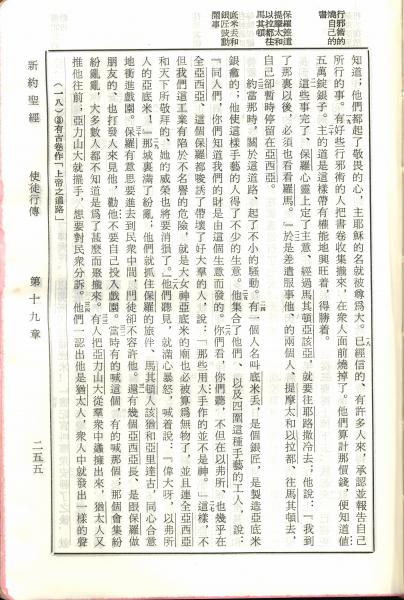 行邪術的
燒自己的
書
保羅差遣
提摩太和
以拉都往
馬其頓
底米丟和
銀匠鼓動
鬧事
知道;他們都起了敬畏的心,主耶穌的名就被尊爲大。已經信的、有許多人來,承認並報告自己
所行的事。有好些行邪術的人把書卷收集攏來,在衆人面前燒掉了。他們算計那價錢,便知道值
五萬錠銀子。主的道是這樣帶有權能地興旺着,得勝着。
這些事完了、保羅心靈上定了主意、經過馬其頓亞該亞,就要往耶路撒冷去;他說:『我到
了那裏以後,必須也看看羅馬。』於是差遣服事他、的兩個人、提摩太和以拉都、往馬其頓去,
自己卻暫時停留在亞西亞。
約當那時、關於這道路、起了不小的騷動。有一個人名叫底米丟,是個銀匠,是製造亞底米
銀龕的,他使這樣手藝的人得了不少的生意。他集合了他們、以及四圍這種手藝的工人,說:
『同人們,你們知道我們的財是由這個生意而發的。你們看,你們聽,不但在以弗所,也幾乎在
全亞西亞、這個保羅都唆誘了帶壞了好大羣的人,說:「那些用人手作的並不是神。」這樣,不
但我們這工業有陷於不名譽的危險,就是大女神亞底米的廟也必被算爲無物了,並且連全亞西亞
和天下所敬拜的、她的威榮也將要消損了。』他們聽見,就滿心暴怒,喊着說:『偉大呀,以弗所
人的亞底米!』那城裏滿了紛亂;他們就抓住保羅的旅伴、馬其頓人該猶和亞里達古,同心合意
地衝進戲園。保羅有意思要進去到民衆中間,門徒卻不容許他。還有幾個亞西亞長、是跟保羅做
朋友的、也打發人來見他,勸他不要自己投入戲園。當時有的喊這個,有的喊那個;那個會集紛
紛亂亂,大多數人都不知道是爲了甚麼而聚攏來。有人把亞力山大從羣衆中慫擁出來,猶太人又
推他往前;亞力山大就擺手,想要對民衆分訴。他們一認出他是猶太人,衆人中就發出一樣的聲
(一八)③有古卷作「上帝之道路」
新約聖經 使徒行傳 第十九章 二五五